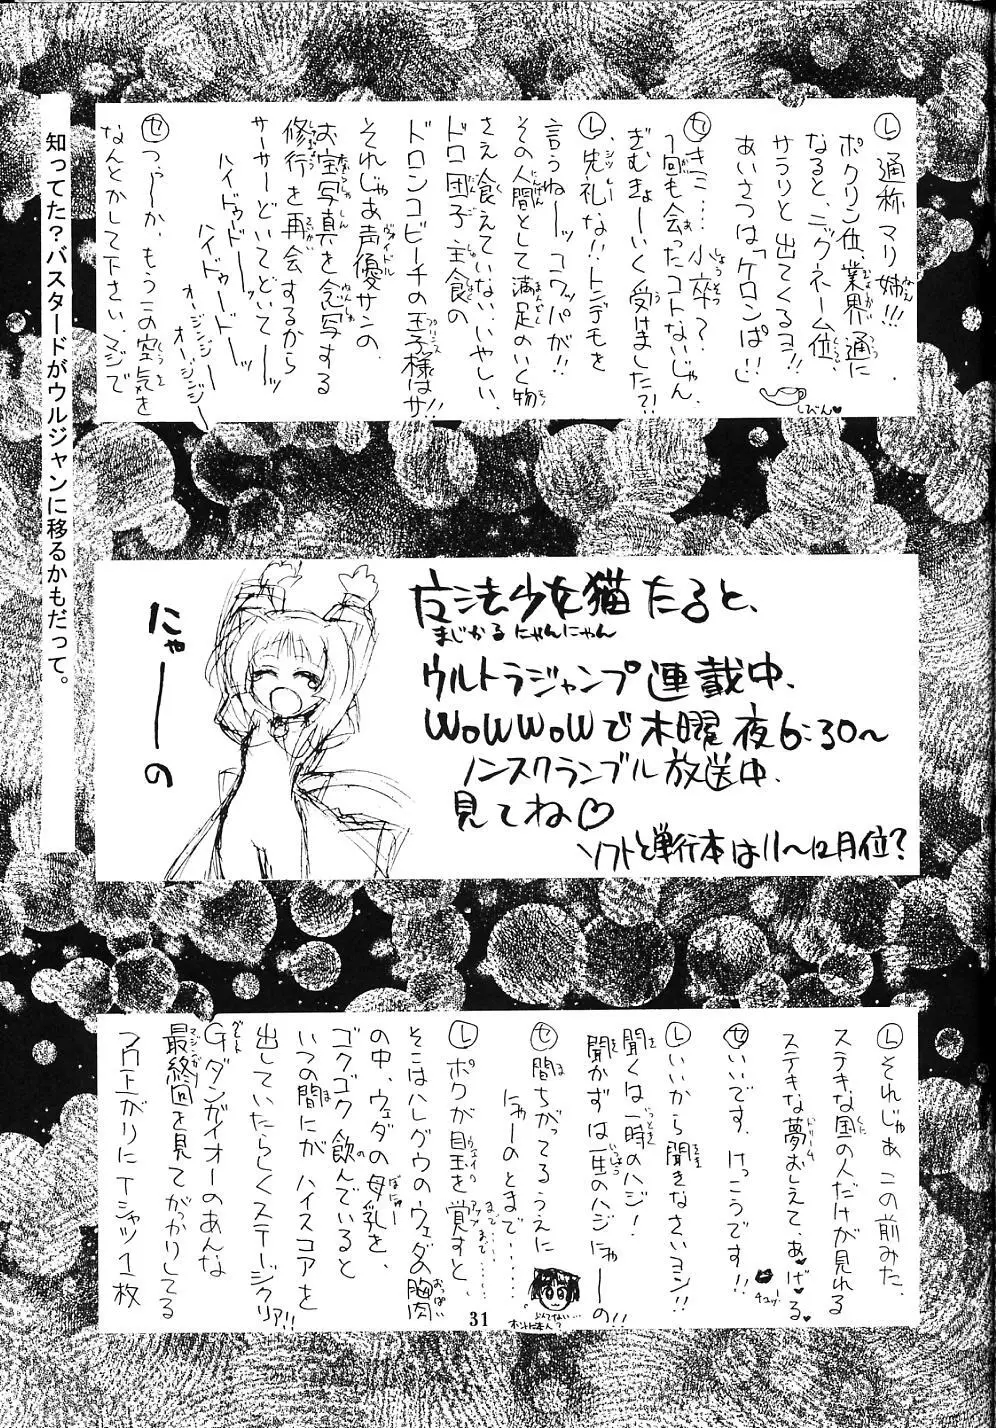 Ⓛ通称マリ姉!!!
ポクリン位業界通に
なると、ニックネーム位、
サラリと出てくるヨ!!
あいさつは「ケロンぱ!!」
しびん♥
Ⓢき…小卒？
1回も会ったコトないじゃん
ぎむきょーいく受けました?!
Ⓛ失礼な!!トンデモを
言うねーッコワッパが!!
その人間として満足のいく物
さえ食えていない、いやしい、
ドロ団子主食の
ドロンコビーチの王子様はサ!!
それじゃあ声優サンの、
お宝写真を念写する
修行を再会するから
サーサーどいてどいてーッ
ハイドゥードーッ
ハイドゥードードー
オージンジー
オージンジー
Ⓢつぅーか、もうこの空気を
なんとかして下さい、マジで
知ってた？バスタードがウルジャンに移るかもだって。
にゃーの
魔法少女猫たると、
まじかるにゃんにゃん
ウルトラジャンプ連載中、
WOWWOWで木曜夜6:30〜
ノンスクランブル放送中、
見てね♡
ソフトと単行本は11〜12月位？
Ⓛそれじゃあこの前みた、
ステキな国の人だけが見れる
ステキな夢おしえて、あ♥げ♥る♥
チュッ!
Ⓢいいです、けっこうです!!
Ⓛいいから聞きなさいヨン!!
聞くは一時のハジ!
聞かずは一生のハジにゃーの!!
Ⓢ間ちがってるうえに
にゃーのとまで……
ホントに本人？
Ⓛポクが目玉を覚すと、
そこはハレグウのウェダの胸肉
の中、ウェダの母乳を、
ゴクゴク飲んでいると
いつの間にかハイスコアを
出していたらしくステージクリア!!
Gダンガイオーのあんな
最終回を見てがかりしてる
フロ上がりにTシャツ1枚
31